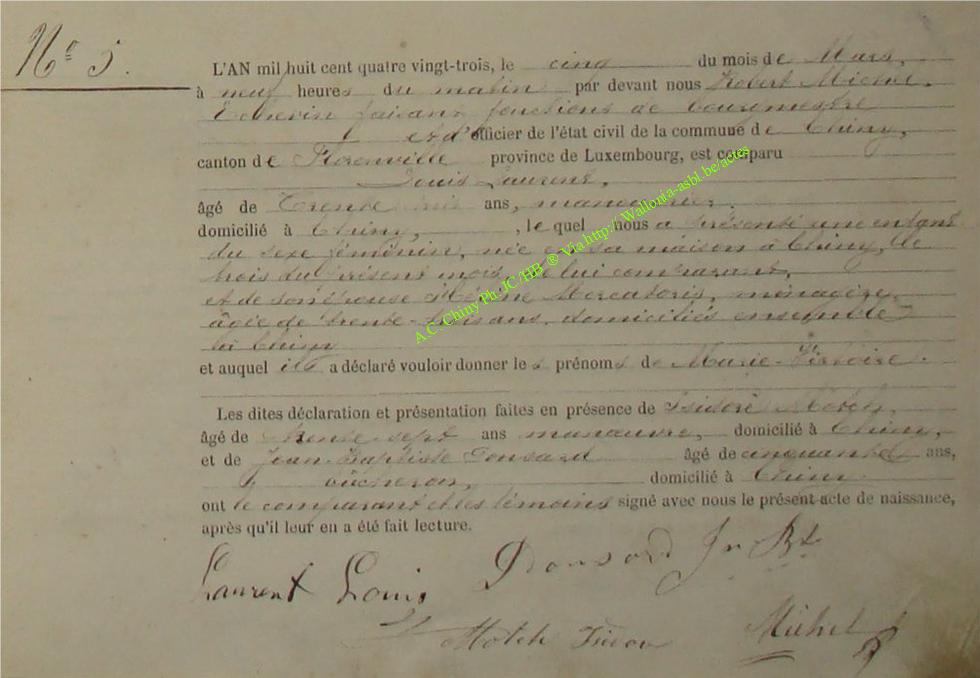 N° 5.
L'AN mil huit cent quatre vingt-trois, le cinq du mois de Mars,
à neuf heures du matin par devant nous Robert Michel,
Echevin faisant fonctions de bourgmestre
et d'officier de l'état civil de la commune de Chiny,
canton de Florenville province de Luxembourg, est comparu
Louis Laurent,
âgé de Trente ans, manouvrier.
domicilié à Chiny, , le quel nous a présenté une enfant
du sexe féminin, née en sa maison à Chiny, le
trois du présent mois, de lui comparant,
et de son épouse Mercatoris, ménagère,
âgée de trente-trois ans, domiciliés ensemble
à Chiny
et auquel il a déclaré vouloir donner les prénoms de Marie-Victoire.
Les dites déclaration et présentation faites en présence de Isidore Motch,
âgé de trente-sept ans manœuvre, domicilié à Chiny,
et de Jean-Baptiste Ponsard âgé de cinquante ans,
bûcheron, domicilié à Chiny.
ont le comparant et les témoins signé avec nous le présent acte de naissance,
après qu'il leur en a été fait lecture.
Laurent Louis Ponsard Jn Bte
Motch Michel
A.C. Chiny Ph. JC/HB ® Via http://Wallonia-asbl.be/actes